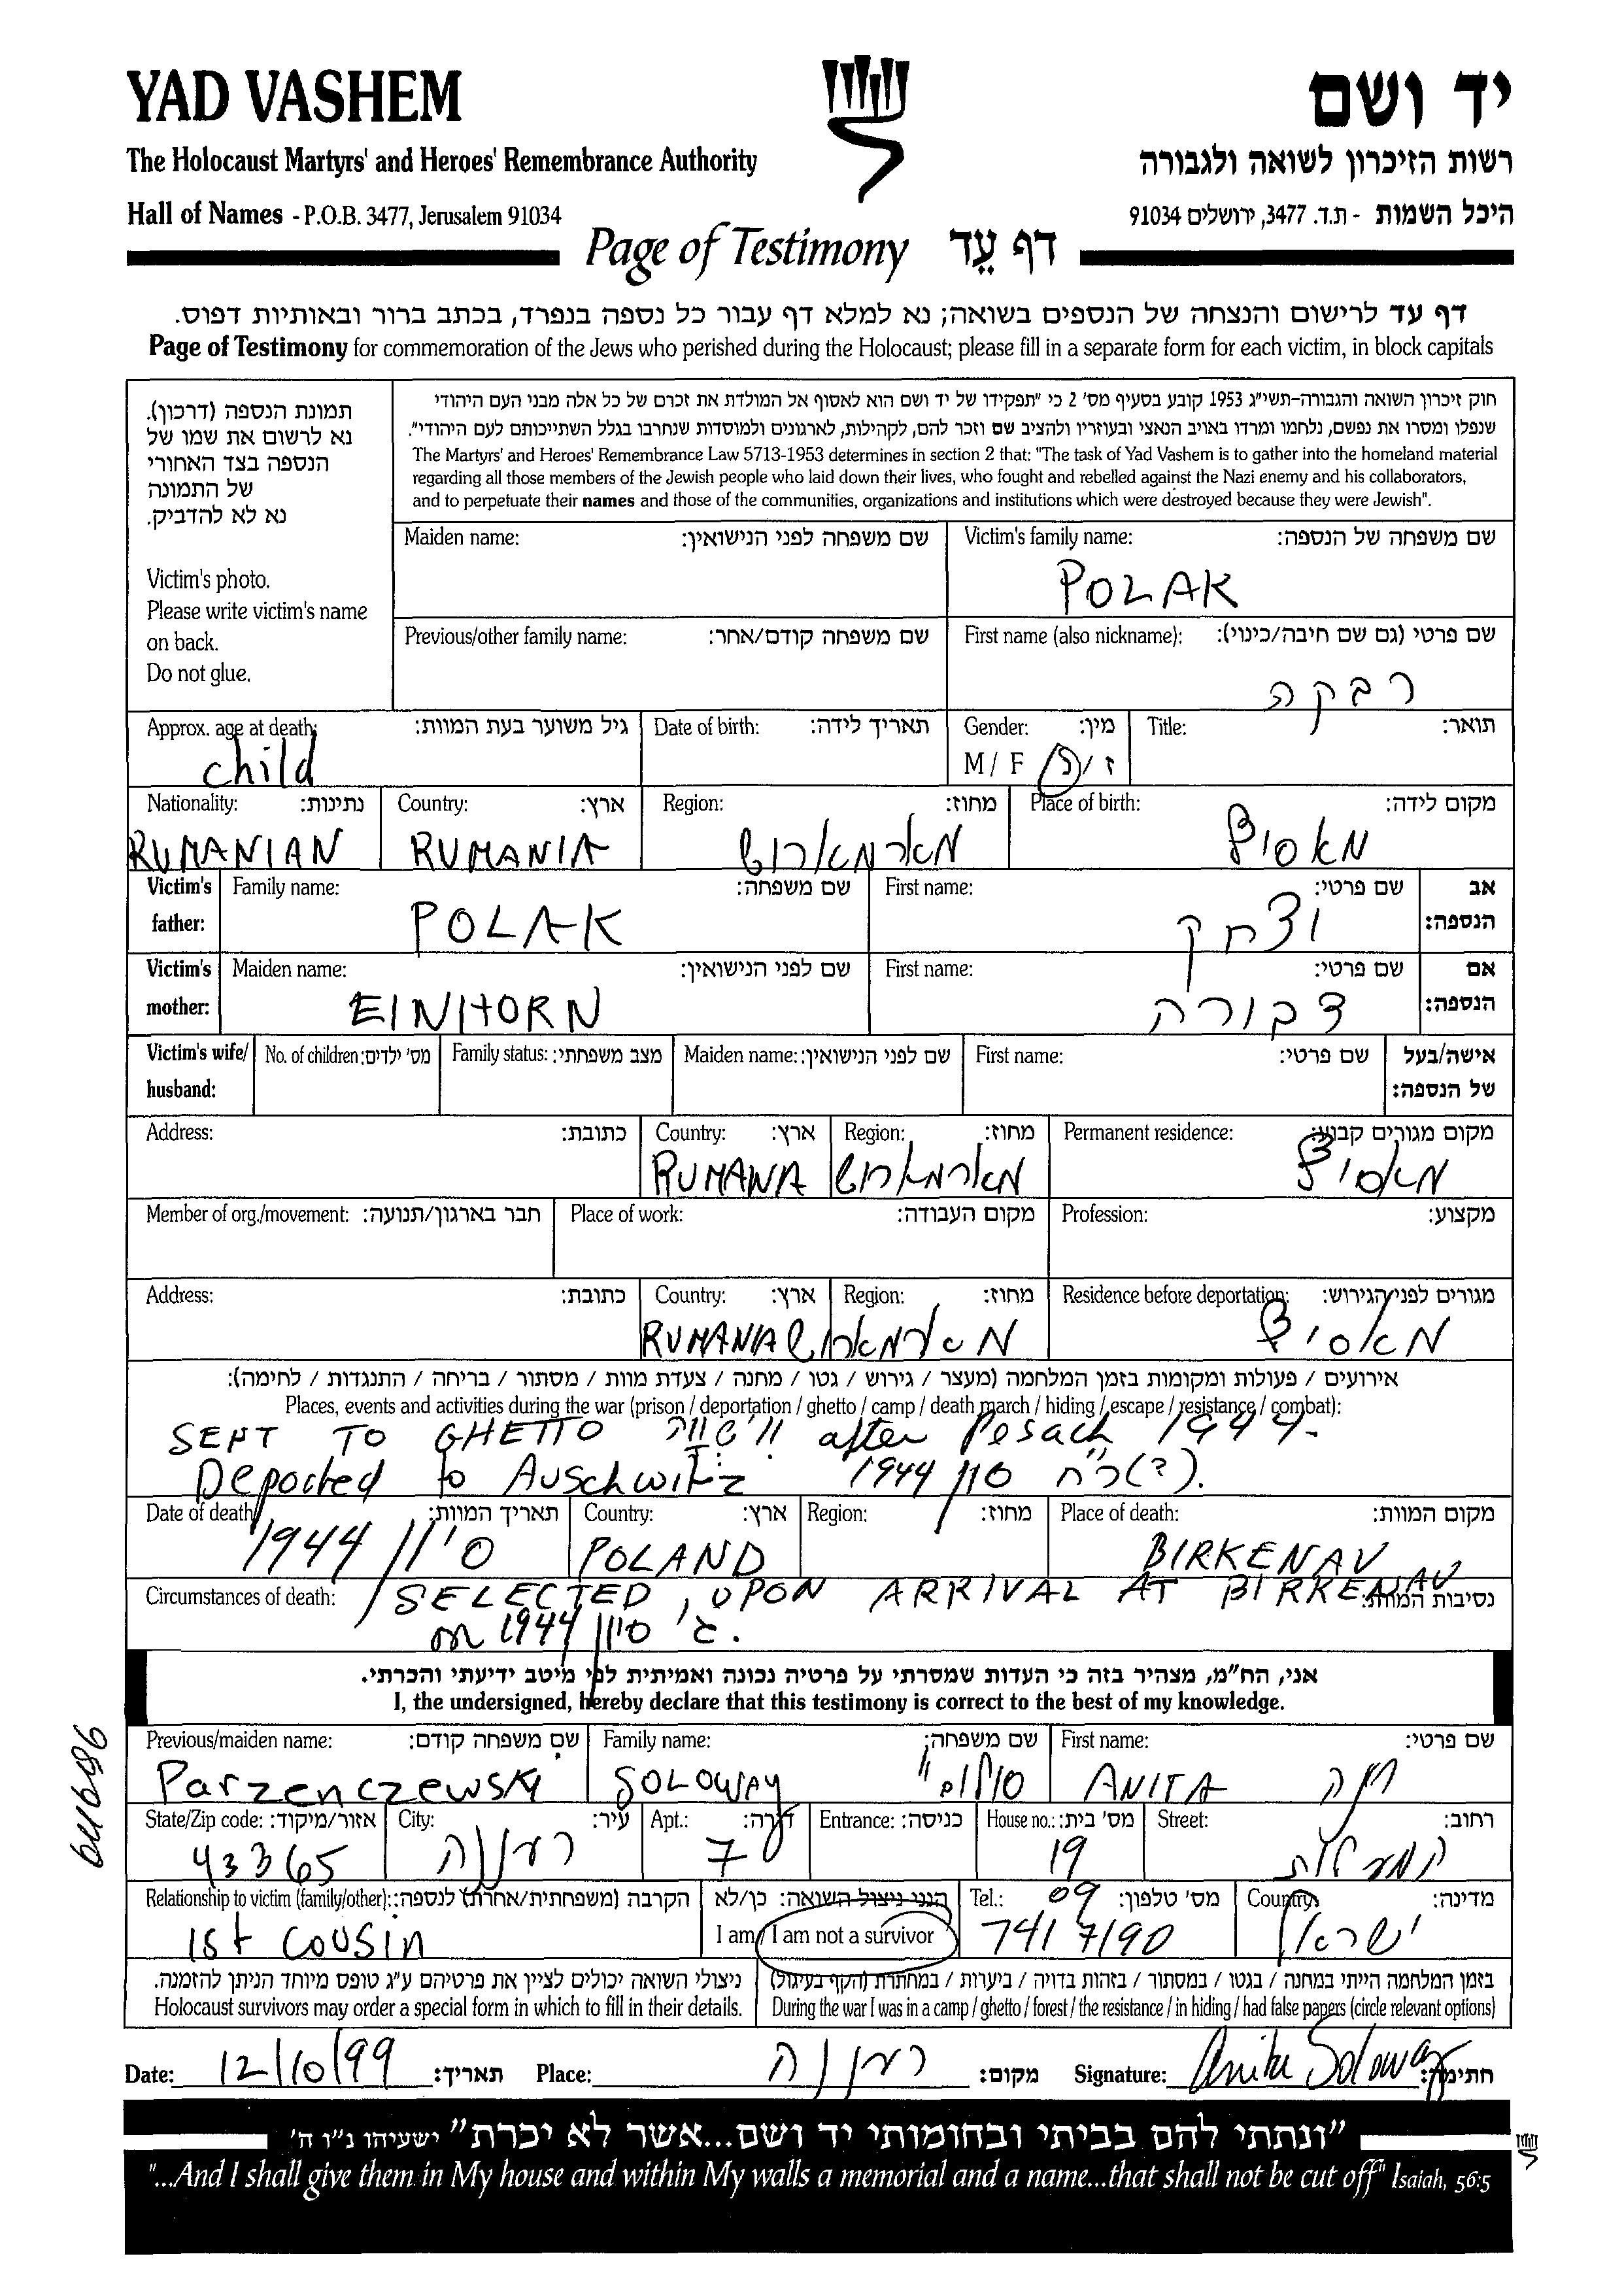 YAD VASHEM
יד ושם
The Holocaust Martyrs' and Heroes' Remembrance Authority
רשות הזיכרון לשואה ולגבורה
Hall of Names - P.O.B. 3477, Jerusalem 91034
היכל השמות - ת.ד. 3477, ירושלים 91034
Page of Testimony דף עֵד
דף עד לרישום והנצחה של הנספים בשואה; נא למלא דף עבור כל נספה בנפרד, בכתב ברור ובאותיות דפוס.
Page of Testimony for commemoration of the Jews who perished during the Holocaust; please fill in a separate form for each victim, in block capitals
תמונת הנספה (דרכון).
נא לרשום את שמו של
הנספה בצד האחורי
של התמונה
נא לא להדביק.
Victim's photo.
Please write victim's name
on back.
Do not glue.
חוק זיכרון השואה והגבורה-תשי"ג 1953 קובע בסעיף מס' 2 כי "תפקידו של יד ושם הוא לאסוף אל המולדת את זכרם של כל אלה מבני העם היהודי
שנפלו ומסרו את נפשם, נלחמו ומרדו באויב הנאצי ובעוזריו ולהציב שם וזכר להם, לקהילות, לארגונים ולמוסדות שנחרבו בגלל השתייכותם לעם היהודי".
The Martyrs' and Heroes' Remembrance Law 5713-1953 determines in section 2 that: "The task of Yad Vashem is to gather into the homeland material
regarding all those members of the Jewish people who laid down their lives, who fought and rebelled against the Nazi enemy and his collaborators,
and to perpetuate their names and those of the communities, organizations and institutions which were destroyed because they were Jewish".
Maiden name: שם משפחה לפני הנישואין:
Victim's family name: שם משפחה של הנספה:
POLAK
Previous/other family name: שם משפחה קודם/אחר:
First name (also nickname): שם פרטי (גם שם חיבה/כינוי):
רבקה
Approx. age at death: גיל משוער בעת המוות:
child
Date of birth: תאריך לידה:
Gender: מין:
M / F ז / נ
Title: תואר:
Nationality: נתינות:
RUMANIAN
Country: ארץ:
RUMANIA
Region: מחוז:
מארמארוש
Place of birth: מקום לידה:
מאסיף
Victim's father: Family name: שם משפחה:
POLAK
First name: שם פרטי: אב הנספה:
יצחק
Victim's mother: Maiden name: שם לפני הנישואין:
EINHORN
First name: שם פרטי: אם הנספה:
דבורה
Victim's wife/ husband: No. of children: מס' ילדים: Family status: מצב משפחתי: Maiden name: שם לפני הנישואין: First name: שם פרטי: אישה/בעל של הנספה:
Address: כתובת:
Country: ארץ:
RUMANIA
Region: מחוז:
מארמארוש
Permanent residence: מקום מגורים קבוע:
מאסיף
Member of org./movement: חבר בארגון/תנועה: Place of work: מקום העבודה: Profession: מקצוע:
Address: כתובת:
Country: ארץ:
RUMANIA
Region: מחוז:
מארמארוש
Residence before deportation: מגורים לפני הגירוש:
מאסיף
אירועים / פעולות ומקומות בזמן המלחמה (מעצר / גירוש / גטו / מחנה / צעדת מוות / מסתור / בריחה / התנגדות / לחימה):
Places, events and activities during the war (prison / deportation / ghetto / camp / death march / hiding / escape / resistance / combat):
SENT TO GHETTO after Pesach 1944.
Deported to Auschwitz 1944 סיון (?) כ"ח.
Date of death: תאריך המוות:
1944 סיון
Country: ארץ:
POLAND
Region: מחוז:
Place of death: מקום המוות:
BIRKENAU
Circumstances of death: נסיבות המוות:
SELECTED, UPON ARRIVAL AT BIRKENAU
on 1944 סיון ג'.
אני, הח"מ, מצהיר בזה כי העדות שמסרתי על פרטיה נכונה ואמיתית לפי מיטב ידיעתי והכרתי.
I, the undersigned, hereby declare that this testimony is correct to the best of my knowledge.
Previous/maiden name: שם משפחה קודם:
Parzenczewski
Family name: שם משפחה:
SOLOWAY סולוביי
First name: שם פרטי:
ANITA חנה
State/Zip code: אזור/מיקוד:
43365
City: עיר:
רעננה
Apt.: דירה:
7
Entrance: כניסה:
House no.: מס' בית:
19
Street: רחוב:
Relationship to victim (family/other): הקרבה (משפחתית/אחרת) לנספה:
1st cousin
הנני ניצול השואה: כן/לא
I am / I am not a survivor
Tel.: מס' טלפון:
09
7417190
Country: מדינה:
ישראל
ניצולי השואה יכולים לציין את פרטיהם ע"ג טופס מיוחד הניתן להזמנה.
Holocaust survivors may order a special form in which to fill in their details.
בזמן המלחמה הייתי במחנה / בגטו / במסתור / בזהות בדויה / ביערות / במחתרת (הקף בעיגול)
During the war I was in a camp / ghetto / forest / the resistance / in hiding / had false papers (circle relevant options)
Date: 12/10/99 תאריך: Place: רעננה מקום: Signature: Anita Soloway חתימה:
"ונתתי להם בביתי ובחומותי יד ושם...אשר לא יכרת" ישעיהו נ"ו ה'
"...And I shall give them in My house and within My walls a memorial and a name...that shall not be cut off" Isaiah, 56:5